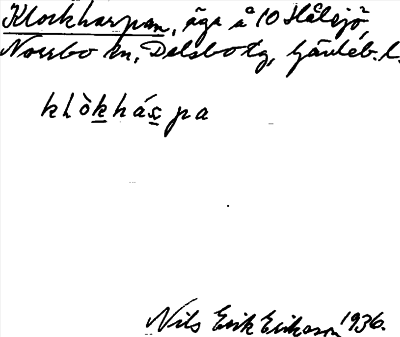 Klockharpan, äga å 10 Hålsjö,
Norrbo sn, Delsbo tg, Gävleb. l.
klòkhás̱pa
Nils Erik Erikson 1936.